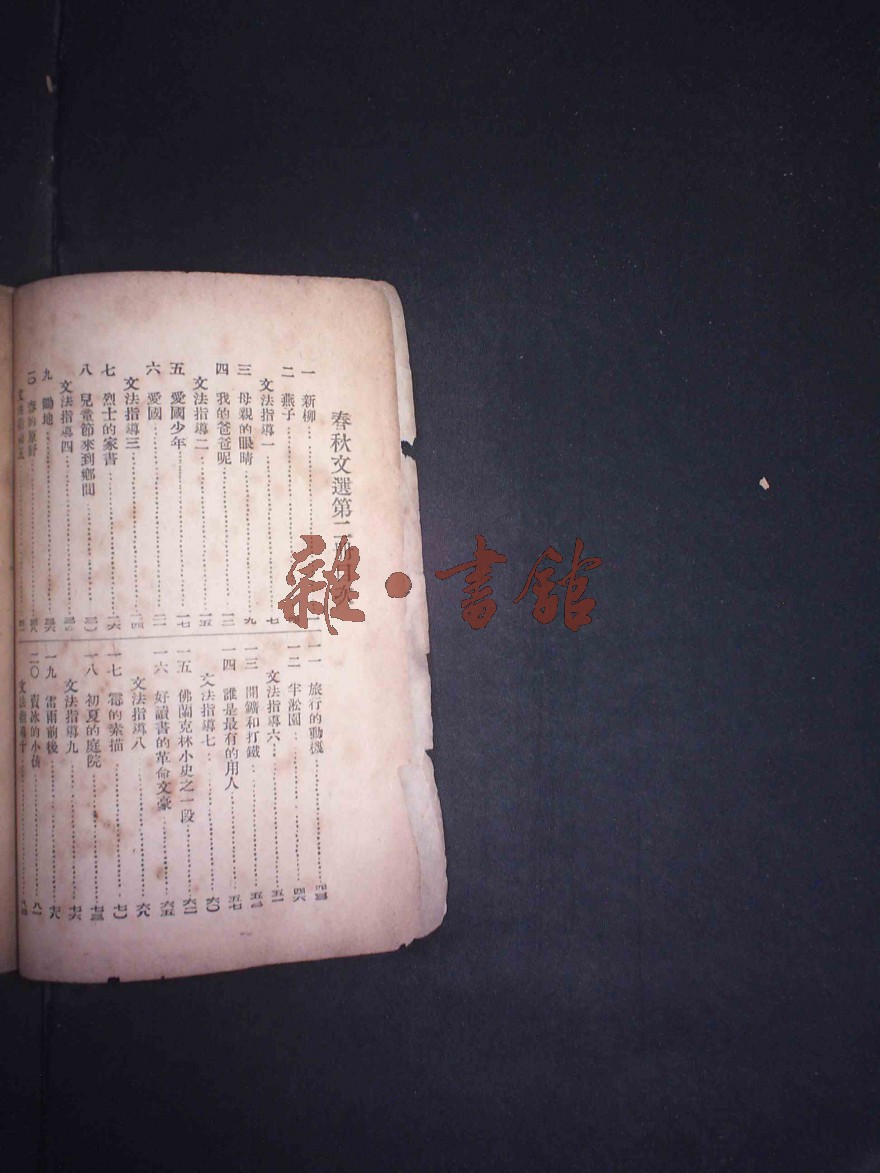 春秋文選第二
一 新柳
二 燕子
文法指導一……七
三 母親的眼睛……九
四 我的爸爸呢……一二
文法指導二……一五
五 愛國少年……一七
六 愛國……二一
文法指導三……二四
七 烈士的家書……二六
八 兒童節來到鄉間……三〇
文法指導四
九 鋤地……三六
一〇
一一 旅行的動機……四三
一二 半淞園……四六
文法指導六……五一
一三 開鑛和打鐵
一四 誰是最有的用人……五七
文法指導七……六〇
一五 佛蘭克林小史之一段……六二
一六 好讀書的革命文豪……六五
文法指導八……六九
一七 霉的素描……七〇
一八 初夏的庭院……七三
文法指導九……七六
一九 雷雨前後……七八
二〇 賣冰的小孩……八一
文法指導十
雜·書館